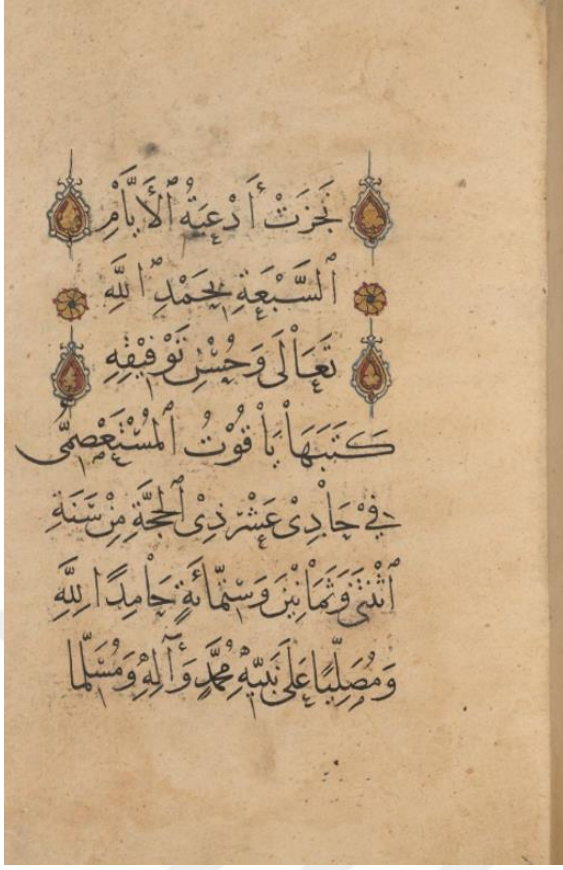 نَجَزَتْ أَدْعِيَةُ ٱلْأَيَّامِ
ٱلسَّبْعَةِ بِحَمْدِ ٱللَّهِ
تَعَالَى وَحُسْنِ تَوْفِيْقِهِ
كَتَبَهَا يَاقُوْتُ ٱلْمُسْتَعْصِمِيُّ
فِيْ حَادِيْ عَشَرَ ذِيْ ٱلْحِجَّةِ مِنْ سَنَةِ
ٱثْنَتَيْ وَثَمَانِيْنَ وَسِتِّمِائَةٍ حَامِدًا لِلَّهِ
وَمُصَلِّيًا عَلَى نَبِيِّهِ مُحَمَّدٍ وَآلِهِ وَمُسَلِّمًا